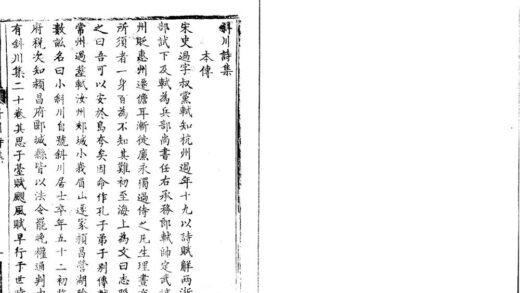 斜川詩集
本傳
宋史過字叔黨軾知杭州過年十九以詩賦解兩浙
部試下及軾為兵部尚書任右承務郎軾帥定武謫
州貶惠州遷儋耳漸徙廉永獨過侍之凡生理晝夜
所須者一身百為不知其難初至海上為文曰志隱
之曰吾可以安於島夷矣因命作孔子弟子別傳軾
常州過葬軾汝州郟城小峨眉山遂家潁昌營湖陰
數畝名曰小斜川自號斜川居士卒年五十二初
府稅次知潁昌府郾城縣皆以法令罷晚權通判中
有斜川集二十卷其思子臺賦颶風賦早行于世時